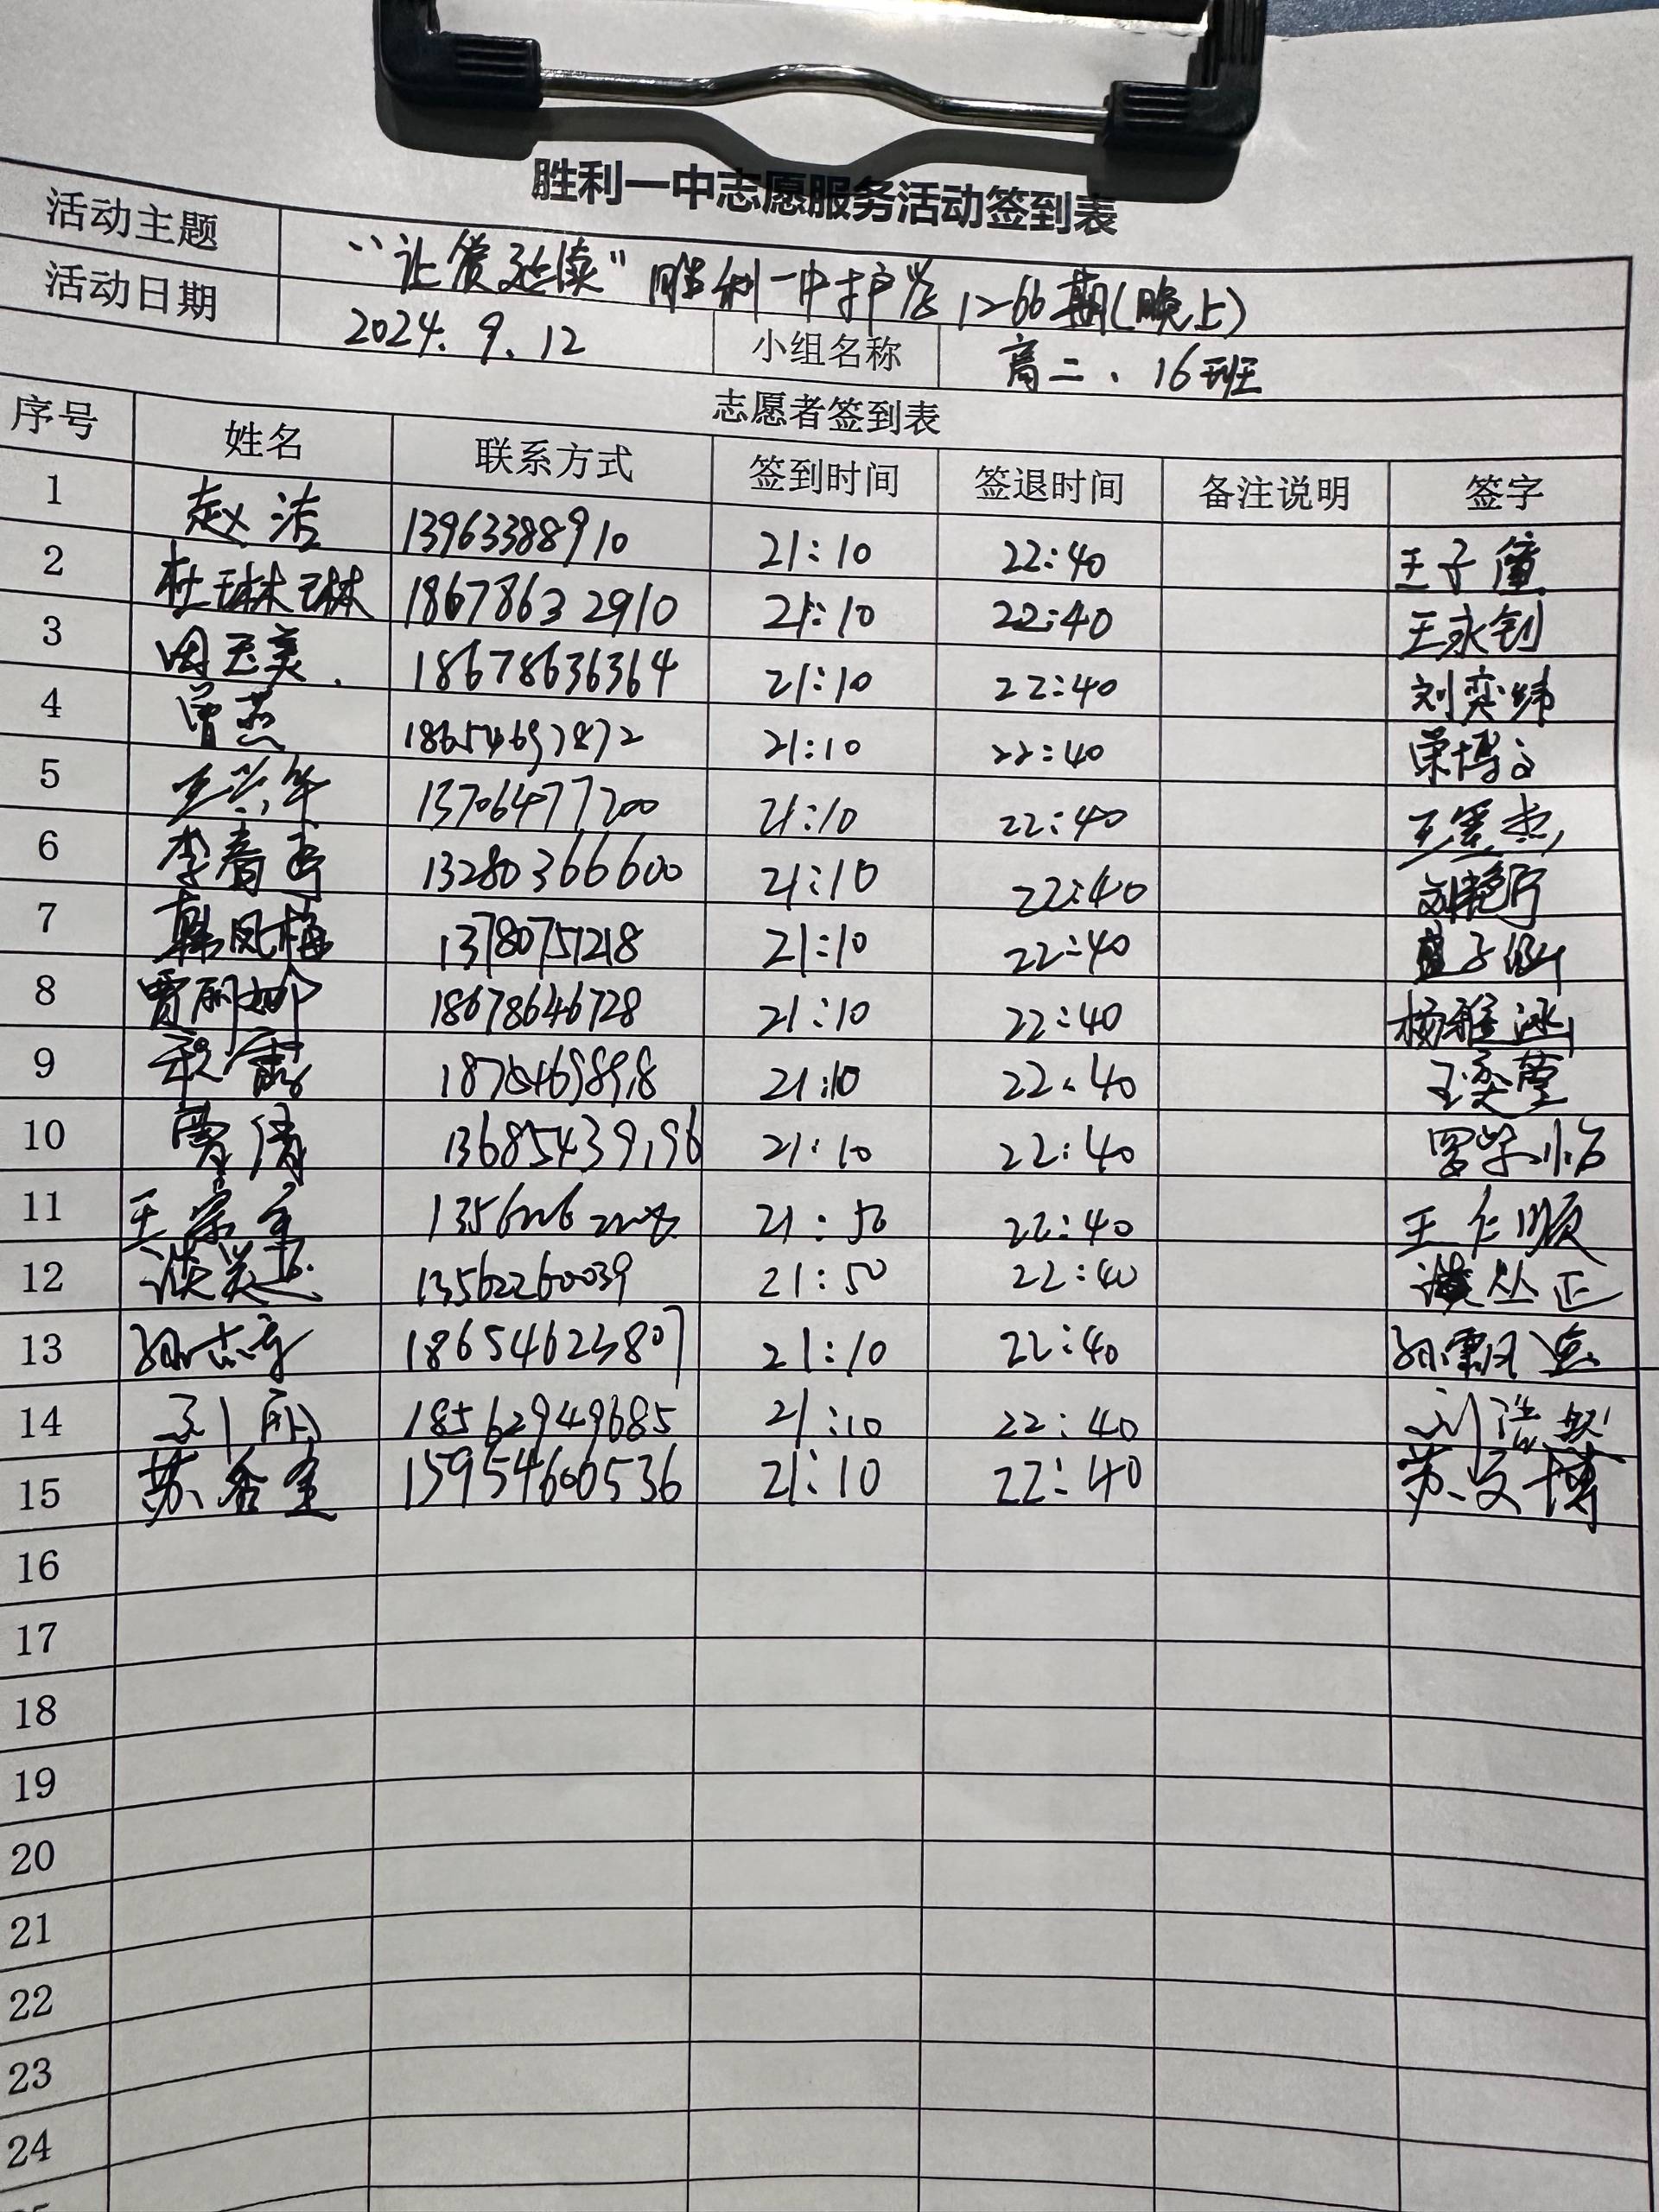 胜利一中志愿服务活动签到表
活动主题 "让爱延续"胜利一中护学1266期(晚上)
活动日期 2024.9.12 小组名称 高二、16班
志愿者签到表
序号 姓名 联系方式 签到时间 签退时间 备注说明 签字
1 赵洁 13963388910 21:10 22:40 王子僮
2 杜琳琳 18678632910 21:10 22:40 王永钊
3 周玉美. 18678636364 21:10 22:40 刘奕炜
4 曾燕 18654697872 21:10 22:40 荣博文
5 13706477200 21:10 22:40
6 李春 13280366600 21:10 22:40 刘艳
7 韩凤梅 13780751218 21:10 22:40 子
8 贾丽娜 18678646728 21:10 22:40 杨雅涵
9 程露 18754698918 21:10 22:40 王奕
10 贾倩 13685439196 21:10 22:40 罗梓怡
11 王 21:50 22:40 王仁顺
12 谈 13562260039 21:50 22:40 谈丛正
13 孙志 18654623807 21:10 22:40 孙
14 刘丽 18562949685 21:10 22:40 刘浩然
15 苏 15954600536 21:10 22:40 苏文博
16
17
18
19
20
21
22
23
24